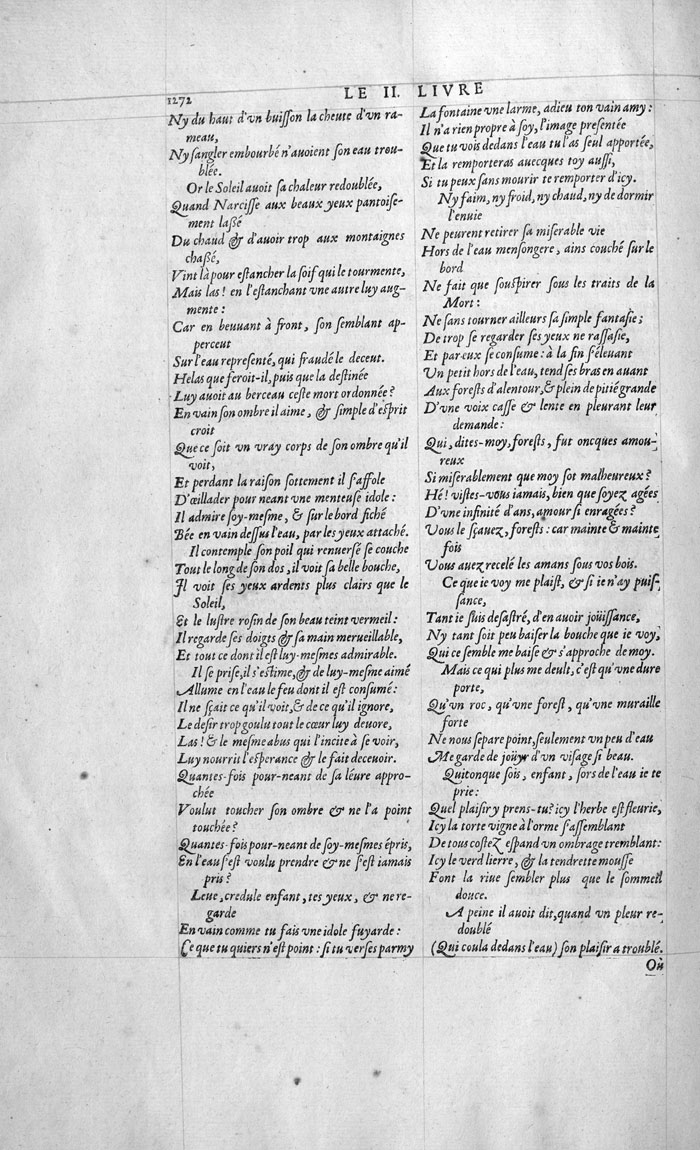 1272
LE II. LIVRE
Ny du haut d'vn buiſſon la cheute d'vn ra-
meau,
Ny ſanglier embourbé n'auoient ſon eau trou-
blée.
Or le Soleil auoit ſa chaleur redoublée,
Quand Narciſſe aux beaux yeux pantoiſe-
ment laßé
Du chaud & d'auoir trop aux montaignes
chaßé,
Vint là pour eſtancher la ſoif qui le tourmente,
Mais las! en l'eſtanchant vne autre luy aug-
mente:
Car en beuuant à front, ſon ſemblant ap-
perceut
Sur l'eau repreſenté, qui fraudé le deceut.
Helas que feroit-il, puis que la deſtinée
Luy auoit au berceau ceſte mort ordonnée?
En vain ſon ombre il aime, & ſimple d'eſprit
croit
Que ce ſoit vn vray corps de ſon ombre qu'il
voit,
Et perdant la raiſon ſottement il s'affole
D'œillader pour neant vne menteuſe idole:
Il admire ſoy-meſme, & ſur le bord fiché
Bée en vain deſſus l'eau, par les yeux attaché.
Il contemple ſon poil qui renuerſé ſe couche
Tout le long de ſon dos, il voit ſa belle bouche,
Il voit ſes yeux ardents plus clairs que le
Soleil,
Et le luſtre roſin de ſon beau teint vermeil:
Il regarde ſes doigts & ſa main merueillable,
Et tout ce dont il eſt luy-meſmes admirable.
Il ſe priſe, il s'eſtime, & de luy-meſme aimé
Allume en l'eau le feu dont il eſt conſumé:
Il ne ſçait ce qu'il voit, & de ce qu'il ignore,
Le deſir trop goulu tout le cœur luy deuore,
Las! & le meſme abus qui l'incite à ſe voir,
Luy nourrit l'eſperance & le fait deceuoir.
Quantes-fois pour-neant de ſa léure appro-
chée
Voulut toucher ſon ombre & ne l'a point
touchée?
Quantes-fois pour-neant de ſoy-meſmes épris,
En l'eau s'eſt voulu prendre & ne s'eſt iamais
pris?
Leue, credule enfant, tes yeux, & ne re-
garde
En vain comme tu fais vne idole fuyarde:
Ce que tu quiers n'eſt point: ſi tu verſes parmy
La fontaine vne larme, adieu ton vain amy:
Il n'a rien propre à ſoy, l'image preſentée
Que tu vois dedans l'eau tu l'as ſeul apportée,
Et la remporteras auecques toy auſſi,
Si tu peux ſans mourir te remporter d'icy.
Ny faim, ny froid, ny chaud, ny de dormir
l'enuie
Ne peurent retirer ſa miſerable vie
Hors de l'eau menſongere, ains couché ſur le
bord
Ne fait que ſouſpirer ſous les traits de la
Mort:
Ne ſans tourner ailleurs ſa ſimple fantaſie;
De trop ſe regarder ſes yeux ne raſſaſie,
Et par-eux ſe conſume: à la fin s'éleuant
Vn petit hors de l'eau, tend ſes bras en auant
Aux foreſts d'alentour, & plein de pitié grande
D'vne voix caſſe & lente en pleurant leur
demande:
Qui, dites-moy, foreſts, fut oncques amou-
reux
Si miſerablement que moy ſot malheureux?
Hé! viſtes-vous iamais, bien que ſoyez agées
D'vne infinité d'ans, amour ſi enragées?
Vous le ſçauez, foreſts: car mainte & mainte
fois
Vous auez recelé les amans ſous vos bois.
Ce que ie voy me plaiſt, & ſi ie n'ay puiſ-
ſance,
Tant ie ſuis deſaſtré, d'en auoir joüiſſance,
Ny tant ſoit peu baiſer la bouche que ie voy,
Qui ce ſemble me baiſe & s'approche de moy.
Mais ce qui plus me deult, c'eſt qu'vne dure
porte,
Qu'vn roc, qu'vne foreſt, qu'vne muraille
forte
Ne nous ſepare point, ſeulement vn peu d'eau
Me garde de joüyr d'vn viſage ſi beau.
Quitonque ſois, enfant, ſors de l'eau ie te
prie:
Quel plaiſir y prens-tu? icy l'herbe eſt fleurie,
Icy la torte vigne à l'orme s'aſſemblant
De tous coſtez eſpand vn ombrage tremblant:
Icy le verd lierre, & la tendrette mouſſe
Font la riue ſembler plus que le ſommeil
douce.
A peine il auoit dit, quand vn pleur re-
doublé
(Qui coula dedans l'eau) ſon plaiſir a troublé.
Où